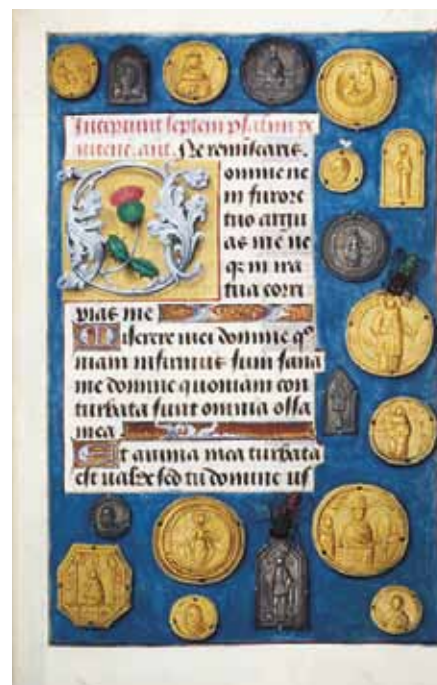 Incipiunt septem psalmi pe
nitent. ant. Ne reminiscaris.
omine ne
in furore
tuo argu
as me ne
qz in ira
tua corri
pias me
Miserere mei domine qo
niam infirmus sum sana
me domine quoniam con
turbata sunt omnia ossa
mea
Et anima mea turbata
est valde sed tu domine us